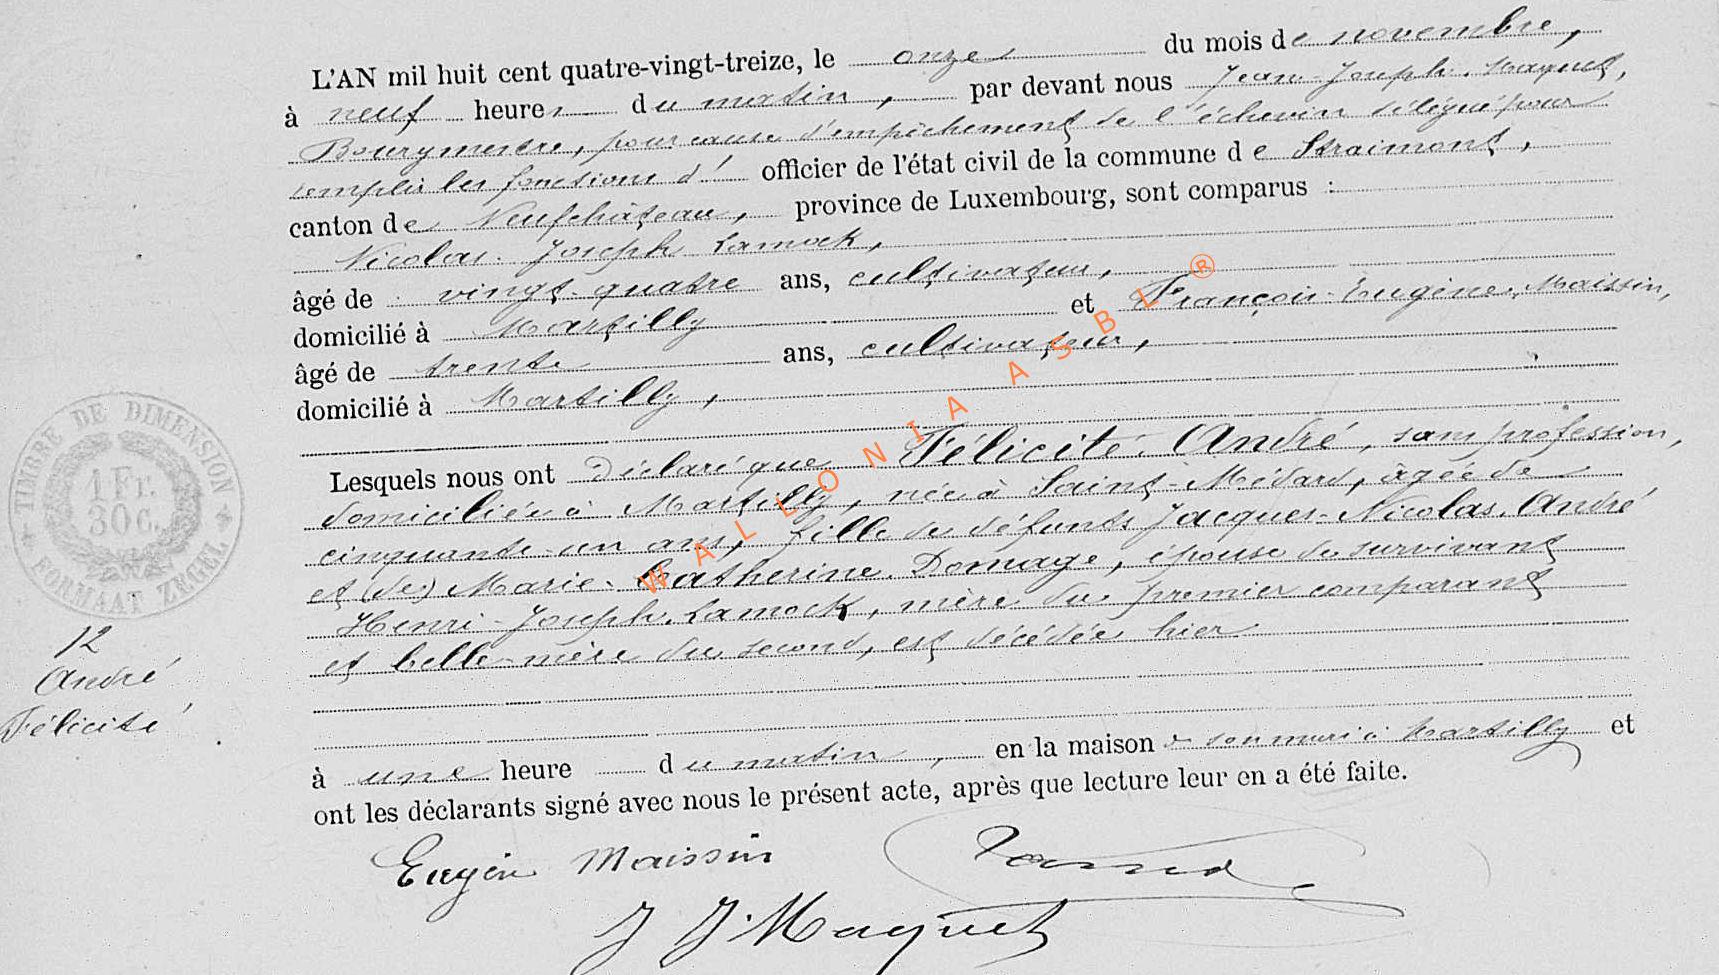 L'AN mil huit cent quatre-vingt-treize, le onze du mois de novembre,
à neuf heures du matin, par devant nous Jean-Joseph Maquet,
Bourgmestre, pour cause d'empêchement de l'échevin délégué pour
remplir les fonctions d' officier de l'état civil de la commune de Straimont,
canton de Neufchâteau, province de Luxembourg, sont comparus :
Nicolas-Joseph Lamock,
âgé de vingt-quatre ans, cultivateur,
domicilié à Martilly et François-Eugène Maissin,
âgé de trente ans, cultivateur,
domicilié à Martilly,
Lesquels nous ont déclaré que Félicité André, sans profession,
domiciliée à Martilly, née à Saint-Médard, âgée de
cinquante-un ans, fille de défunts Jacques-Nicolas André
et (de) Marie-Catherine Domage, épouse de survivant
Henri-Joseph Lamock, mère du premier comparant
et belle-mère du second, est décédée hier
à une heure du matin, en la maison de son mari à Martilly et
ont les déclarants signé avec nous le présent acte, après que lecture leur en a été faite.
Eugène Maissin
J J Maquet
TIMBRE DE DIMENSION
1 Fr.
30 c.
FORMAAT ZEGEL
12
André
Félicité
WALLONIA ASBL ®